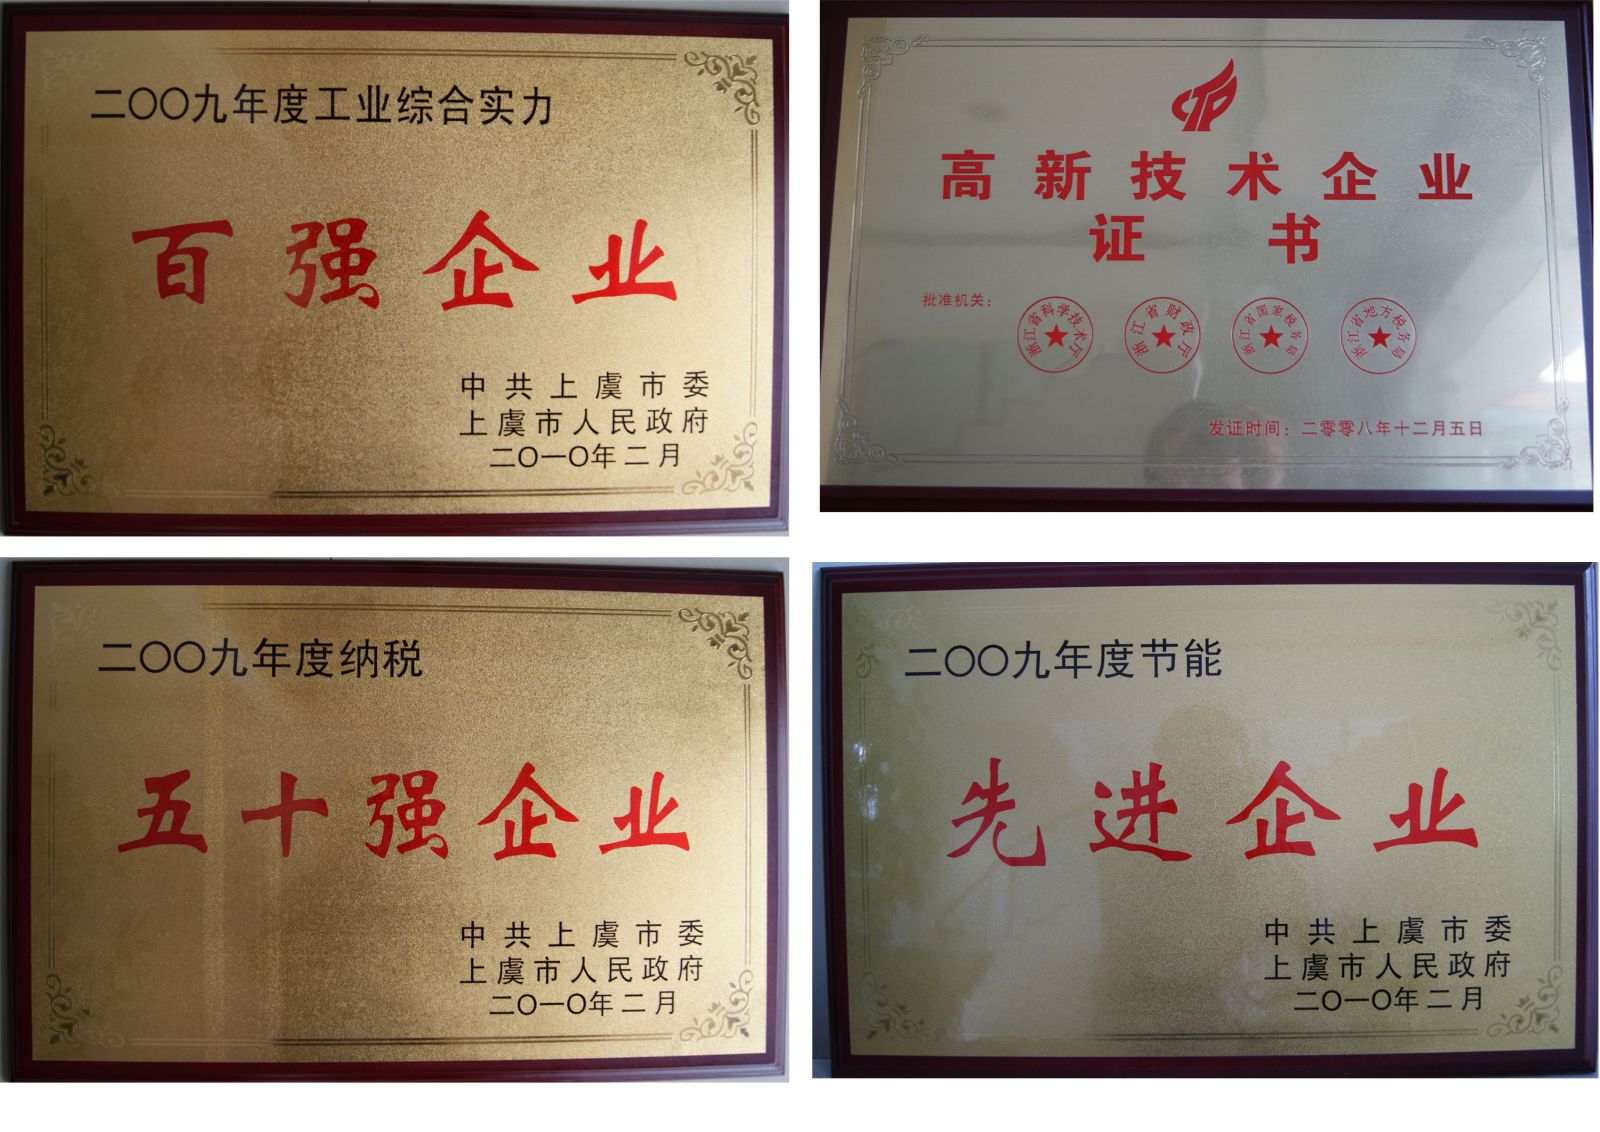 二〇〇九年度工业综合实力
百强企业
中共上虞市委
上虞市人民政府
二〇一〇年二月
高新技术企业
证书
批准机关：
浙江省科学技术厅
浙江省财政厅
浙江省国家税务局
浙江省地方税务局
发证时间：二零零八年十二月五日
二〇〇九年度纳税
五十强企业
中共上虞市委
上虞市人民政府
二〇一〇年二月
二〇〇九年度节能
先进企业
中共上虞市委
上虞市人民政府
二〇一〇年二月